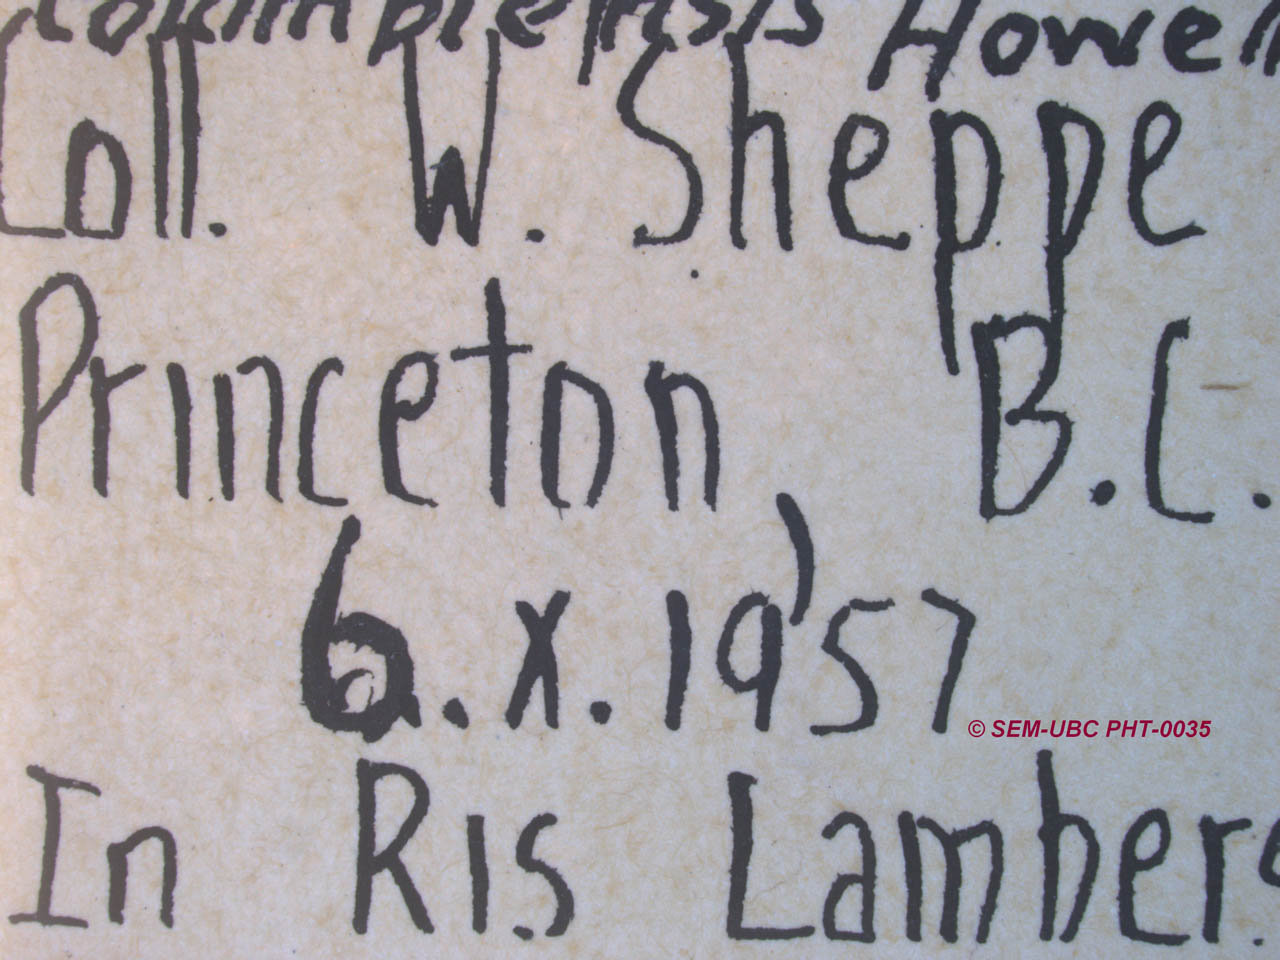 columbiensis Howell
Coll. W. Sheppe
Princeton, B.C.
6.X.1957
© SEM-UBC PHT-0035
In Ris Lambers